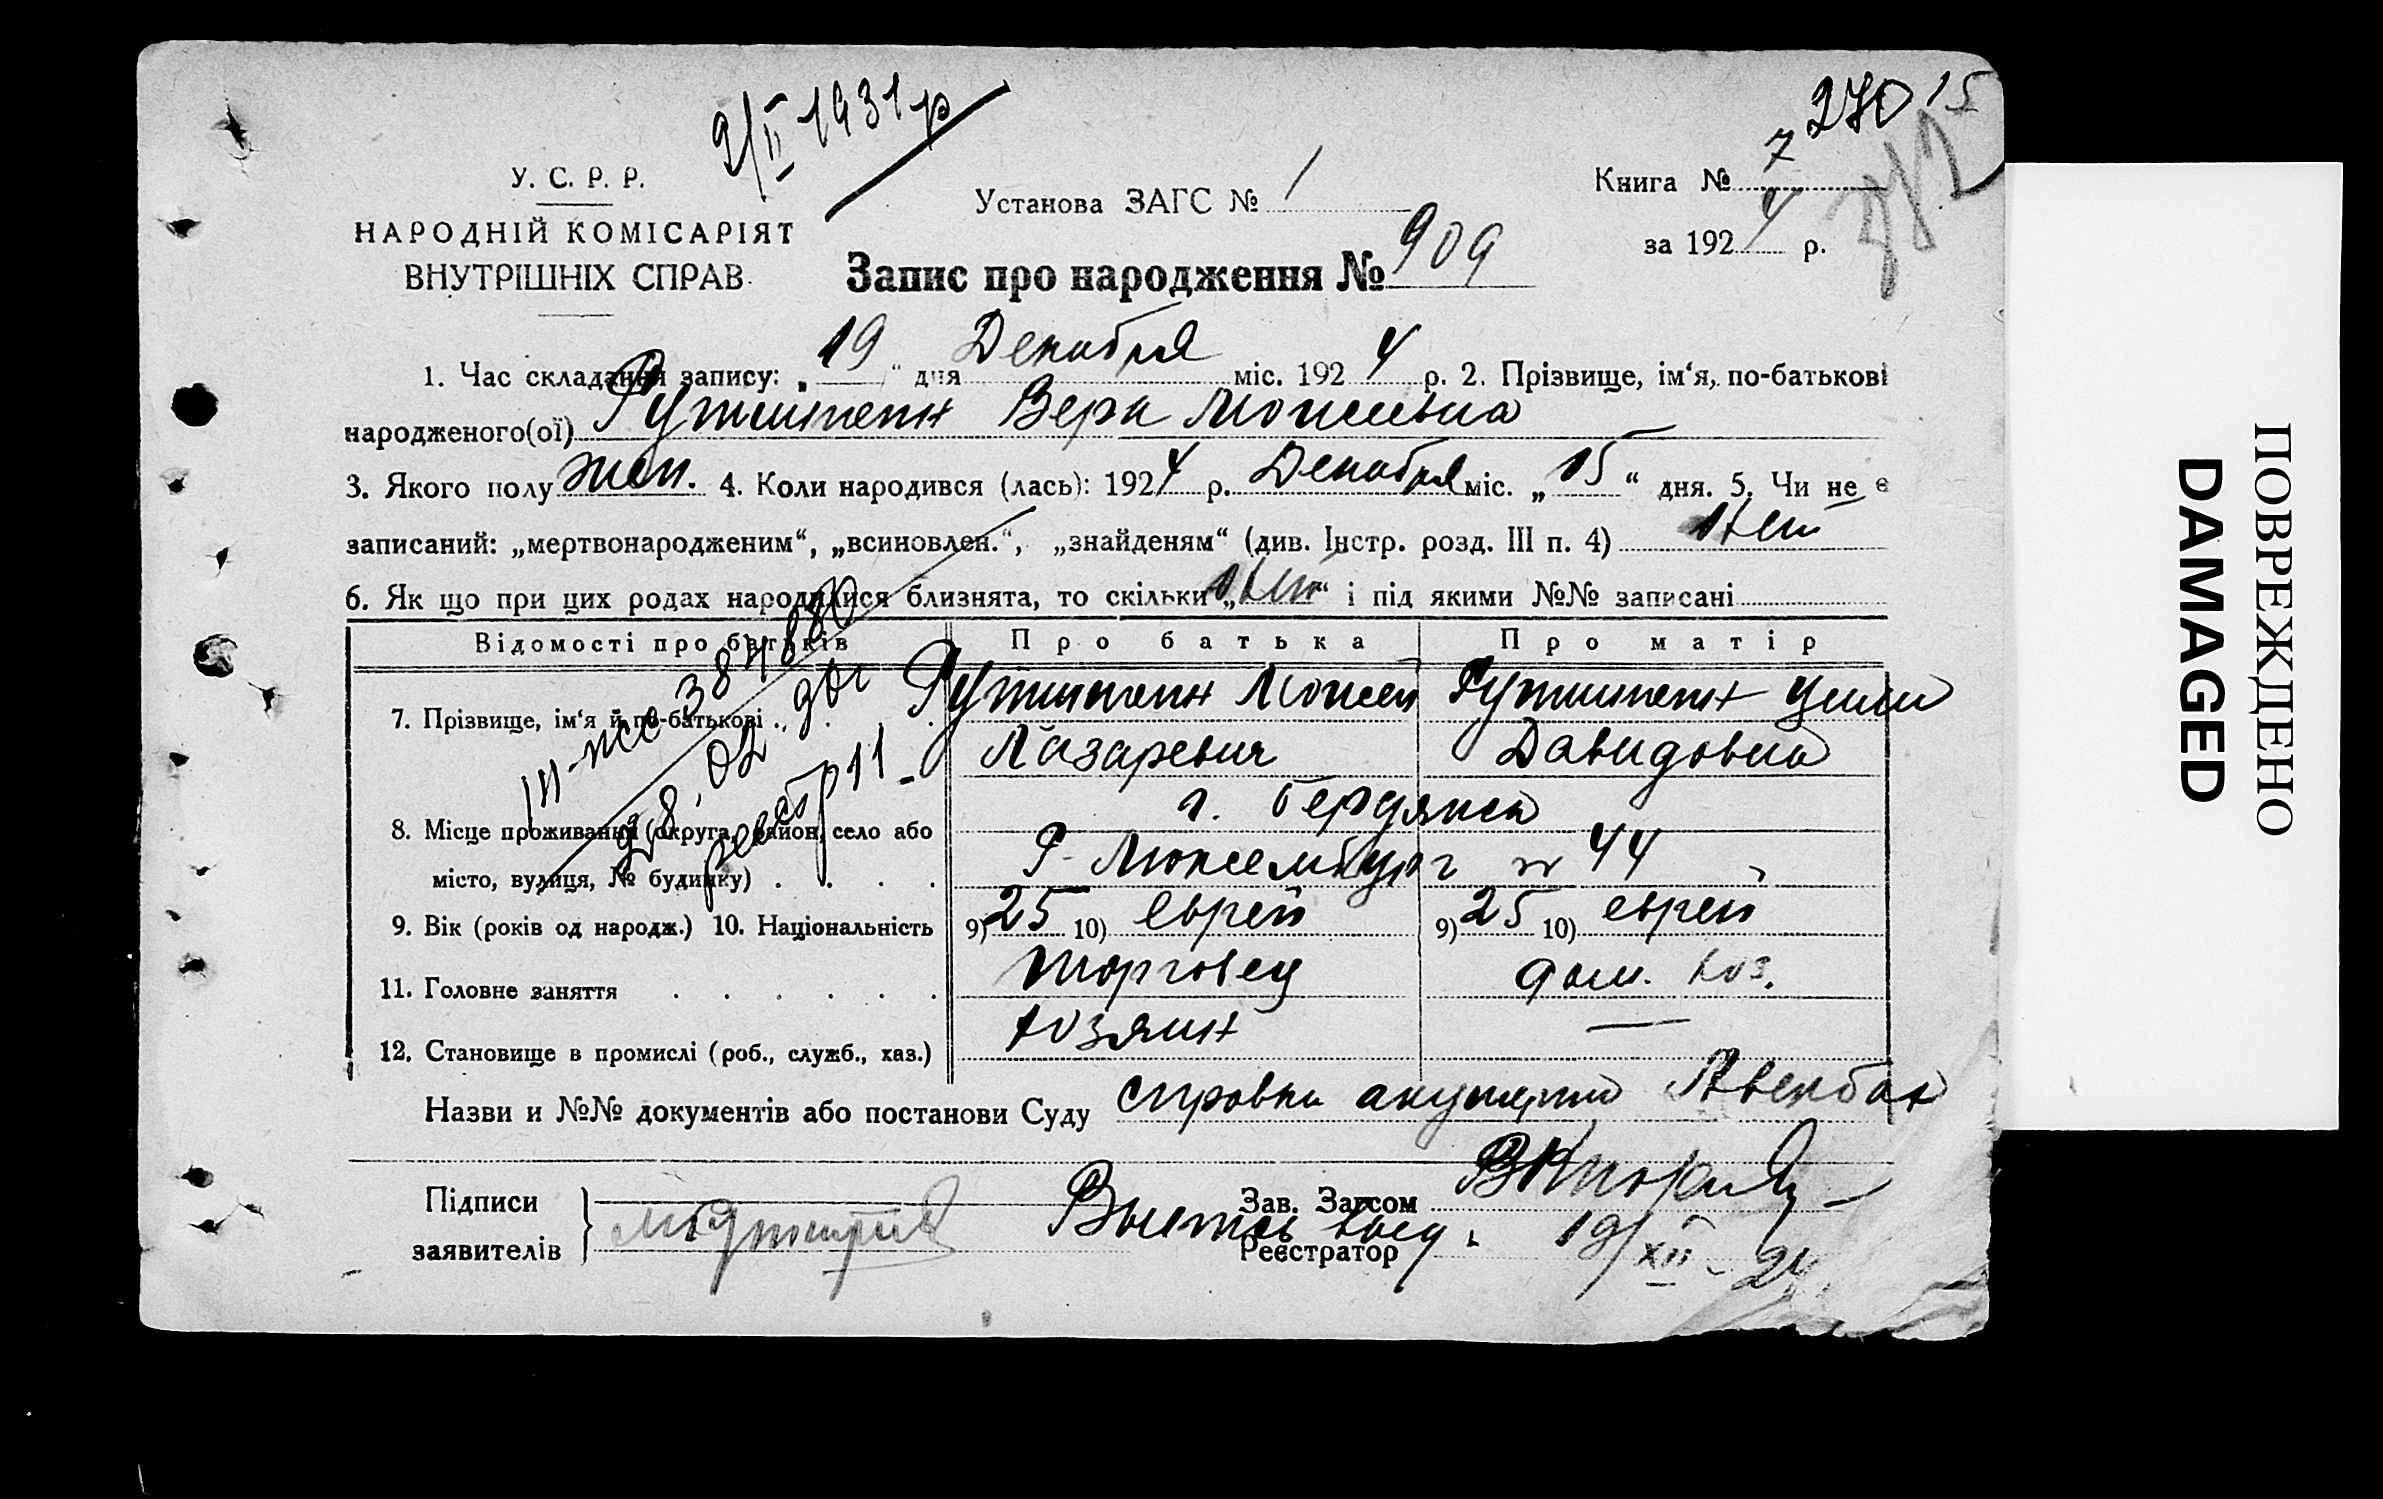 9/II 1931 р
270 15
У. С. Р. Р.
НАРОДНІЙ КОМІСАРІЯТ
ВНУТРІШНІХ СПРАВ.
Установа ЗАГС № 1
Книга № 7
за 1924 р.
Запис про народження № 909
1. Час складання запису: „19“ дня Декабря міс. 1924 р. 2. Прізвище, ім‘я, по-батькові
народженого(ої) Гутштейн Вера Моисеевна
3. Якого полу жен. 4. Коли народився (лась): 1924 р. Декабря міс. „15“ дня. 5. Чи не є
записаний: „мертвонародженим“, „всиновлен.“, „знайденям“ (див. Інстр. розд. III п. 4) Нет
6. Як що при цих родах народилися близнята, то скільки „Нет“ і під якими №№ записані
Відомості про батьків Про батька Про матір
7. Прізвище, ім‘я й по-батькові Гутштейн Моисей Гутштейн
Лазаревич Давидовна
8. Місце проживання (округа, район, село або г. Бердянск
місто, вулиця, № будинку) Р. Люксембург № 44
9. Вік (років од народж.) 10. Національність 9) 25 10) еврей 9) 25 10) еврей
11. Головне заняття торговец дом. хоз.
12. Становище в промислі (роб., служб., хаз.) хозяин —
Назви и №№ документів або постанови Суду справка акушерки
Підписи
заявителів
Зав. Загсом
Реєстратор
19/XII 24
реестр 11
ПОВРЕЖДЕНО
DAMAGED